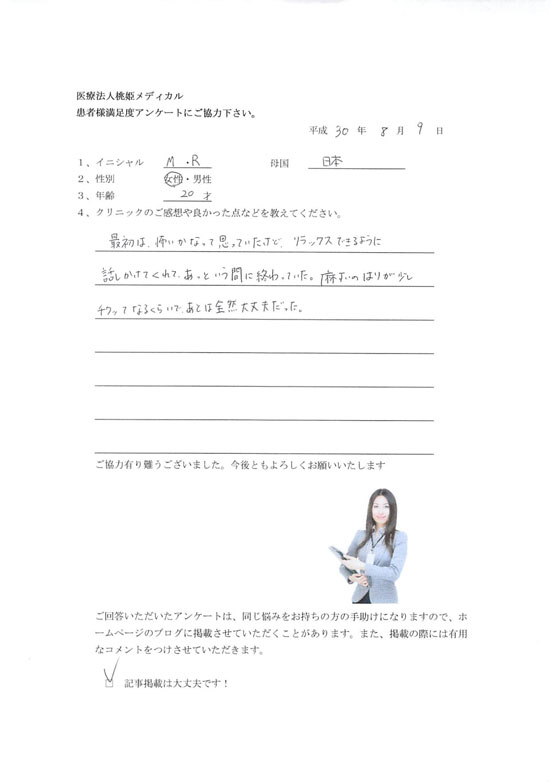 医療法人桃姫メディカル
患者様満足度アンケートにご協力下さい。
平成 30 年 8 月 9 日
1、イニシャル M・R 母国 日本
2、性別 女性・男性
3、年齢 20 才
4、クリニックのご感想や良かった点などを教えてください。
最初は、怖いかなって思っていたけど、リラックスできるように
話しかけてくれて、あっという間に終わっていた。麻すいのはりが少し
チクッてなるくらいで、あとは全然大丈夫だった。
ご協力有り難うございました。今後ともよろしくお願いいたします
ご回答いただいたアンケートは、同じ悩みをお持ちの方の手助けになりますので、ホ
ームページのブログに掲載させていただくことがあります。また、掲載の際には有用
なコメントをつけさせていただきます。
記事掲載は大丈夫です！